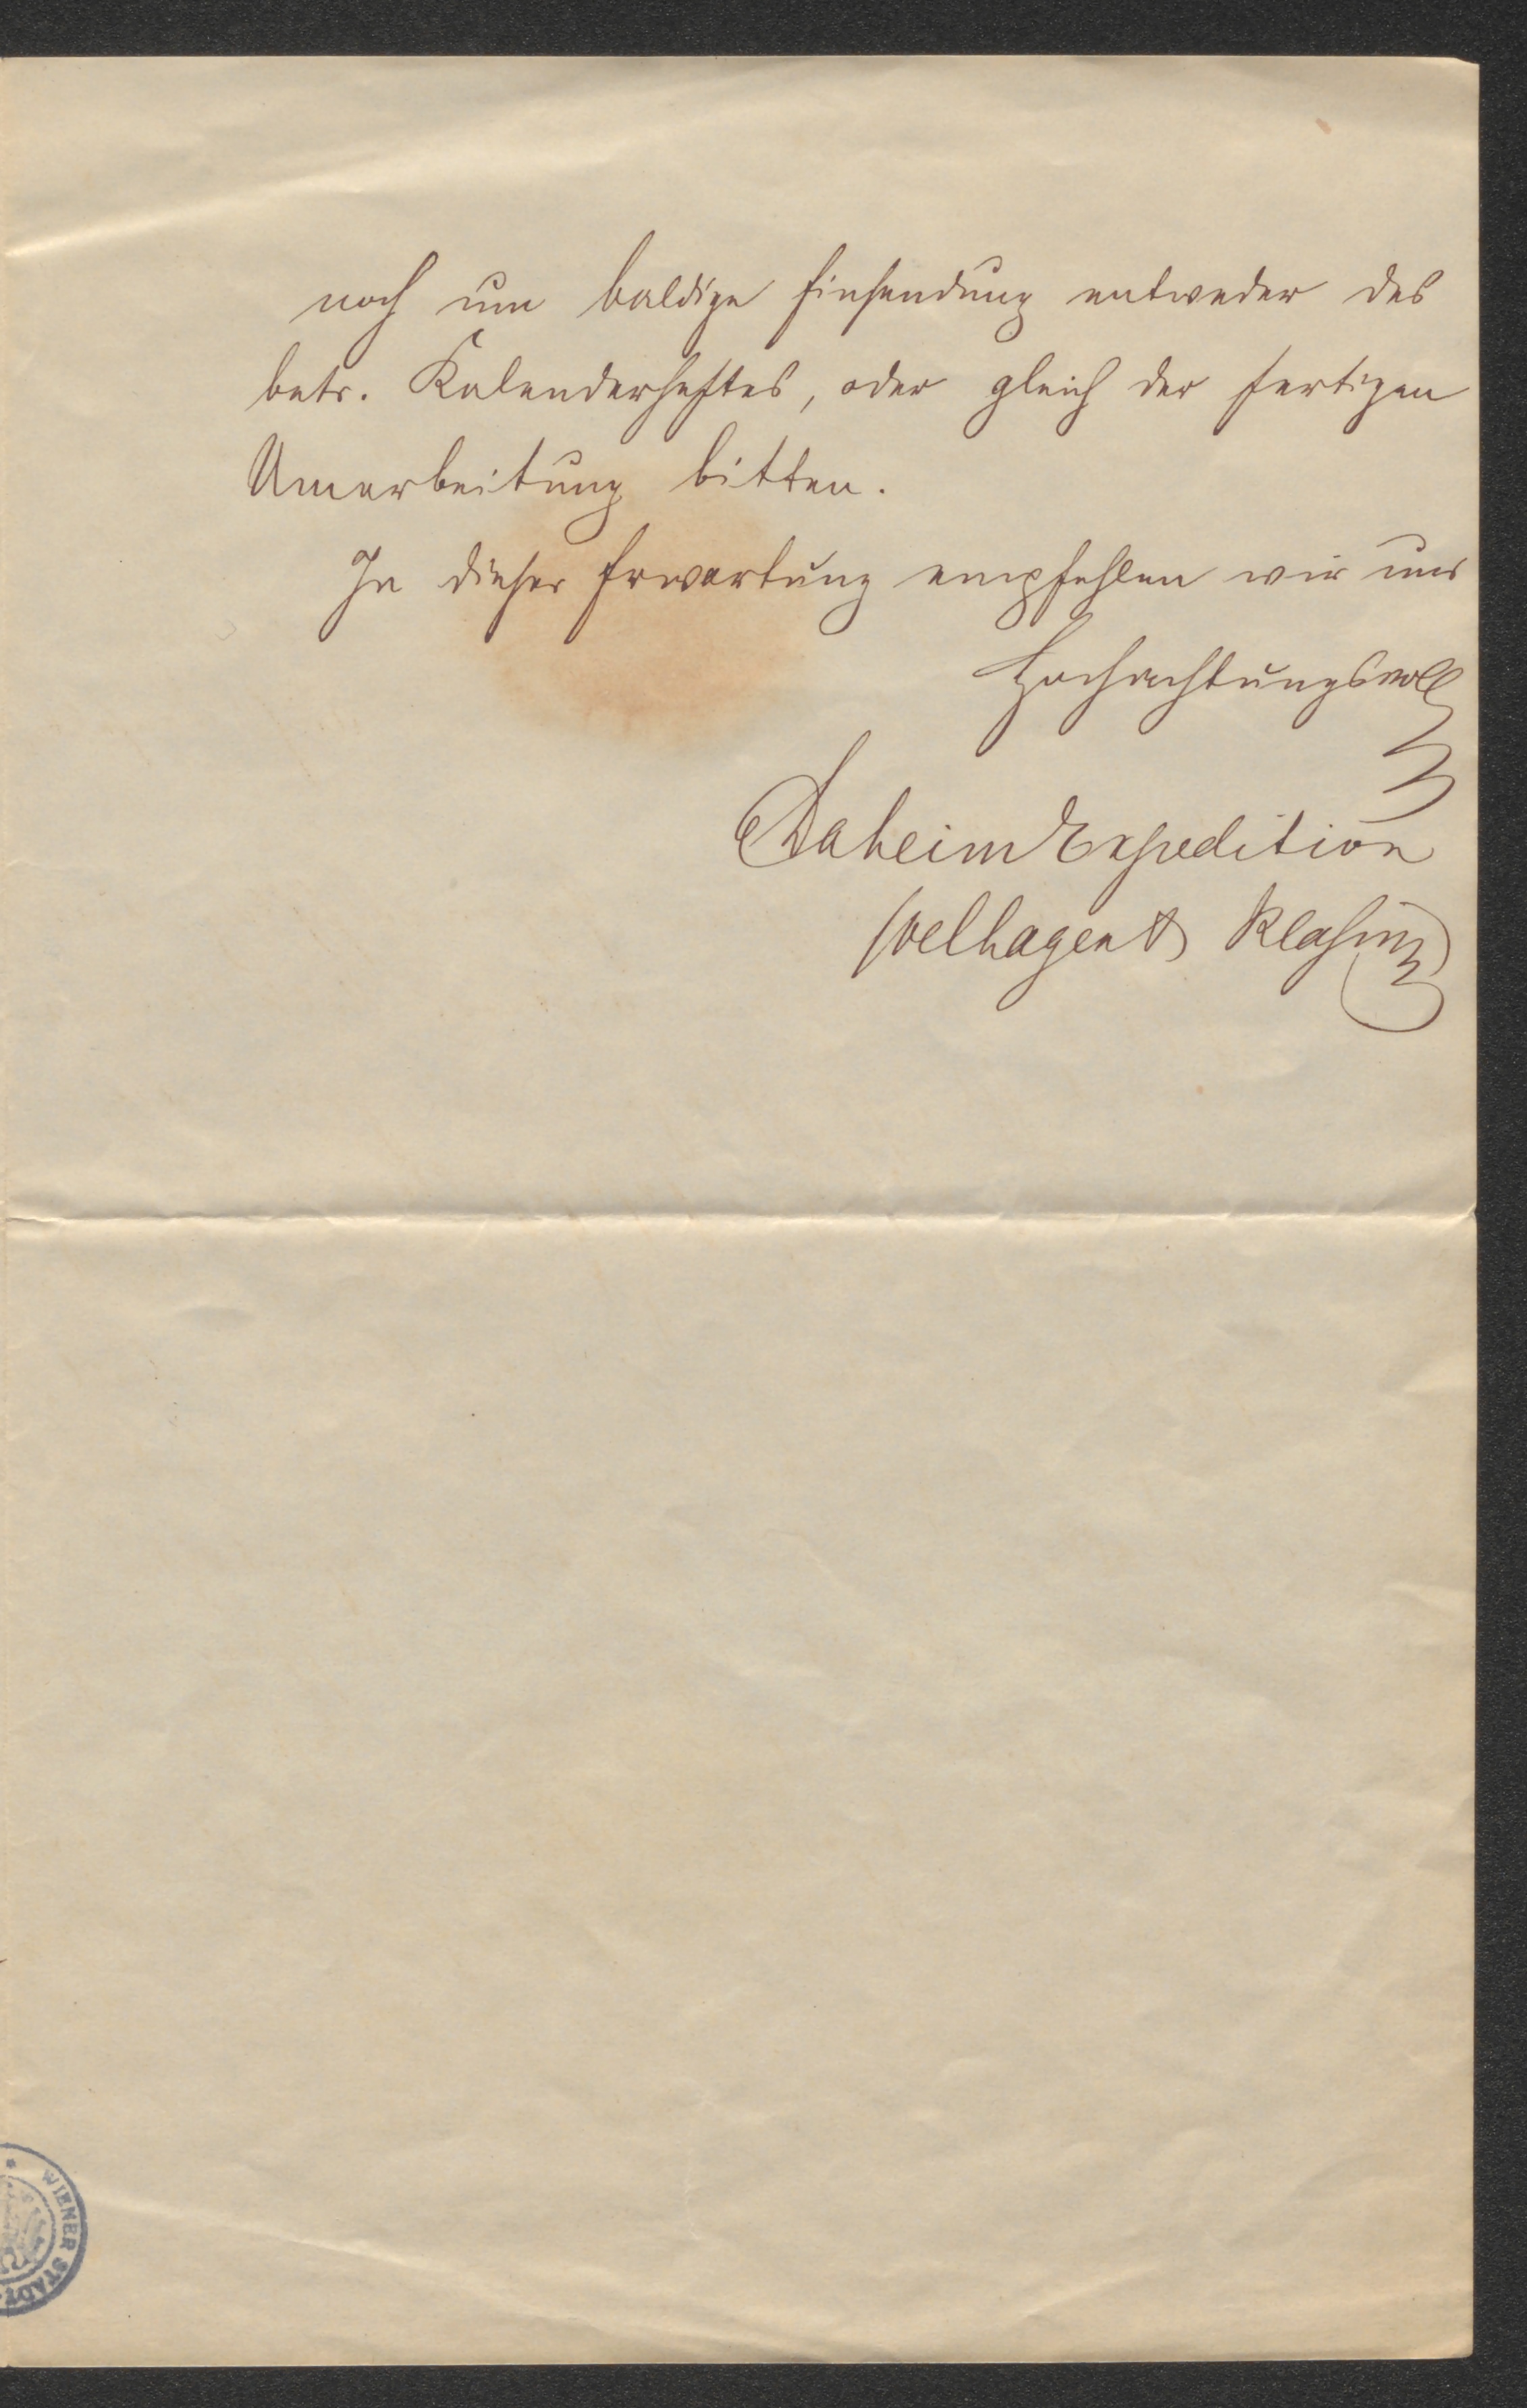 noch um baldige Einsendung entweder des
betr. Kalenderheftes, oder gleich der fertigen
Umarbeitung bitten.
In dieser Erwartung empfehlen wir uns
Hochachtungsvoll
Daheim Expedition
Velhagen & Klasing
WIENER STADT